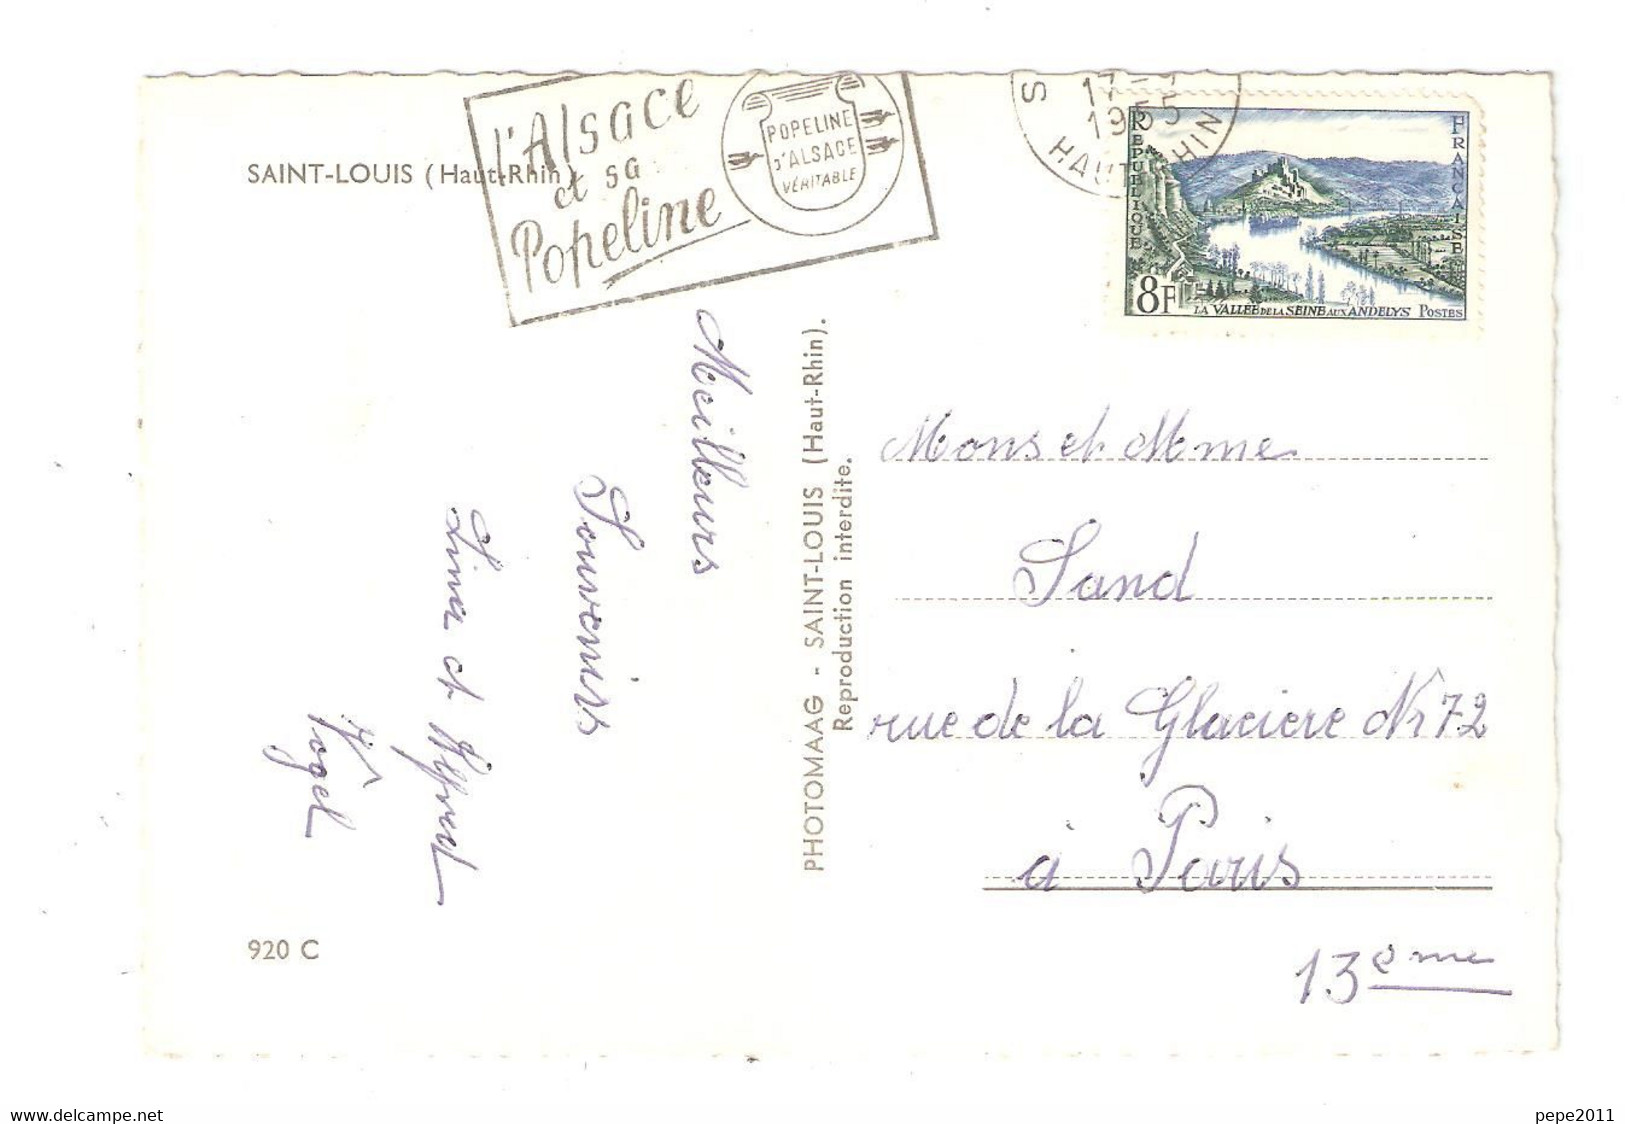 SAINT-LOUIS (Haut-Rhin)
l'Alsace
et sa
Popeline
POPELINE
D'ALSACE
VÉRITABLE
S
17
1955
HAUT RHIN
REPUBLIQUE
FRANCAISE
8F
LA VALLEE DE LA SEINE AUX ANDELYS POSTES
Meilleurs
Souvenirs
Lina et Alfred
Vogel
PHOTOMAAG - SAINT-LOUIS (Haut-Rhin).
Reproduction interdite.
Mons et Mme
Sand
rue de la Glaciere Nr 72
à Paris
13eme
920 C
www.delcampe.net
pepe2011